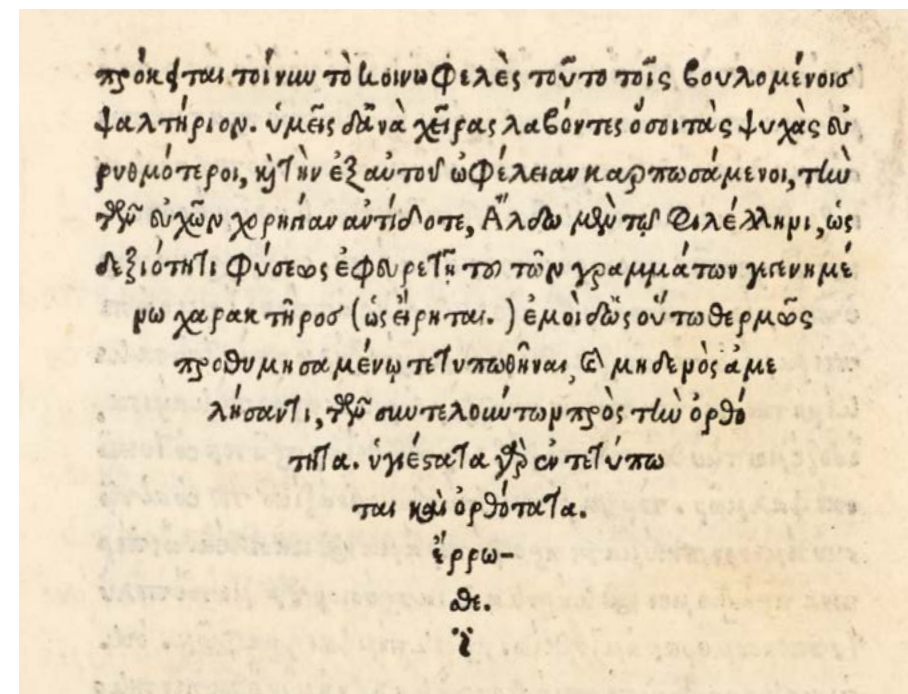 πρόκειται τοίνυν τὸ κοινωφελὲς τοῦτο τοῖς βουλομένοισ
ψαλτήριον. ὑμεῖς δ' ἀνὰ χεῖρας λαβόντες ὅσοι τὰς ψυχὰς εὐ
ρυθμότεροι, καὶ τὴν ἐξ αὐτοῦ ὠφέλειαν καρπωσάμενοι, τὴν
τῶν εὐχῶν χορηγίαν ἀντίδοτε, Ἄλδω μὲν τῷ Φιλέλληνι, ὡς
δεξιότητι φύσεως ἐφευρετῇ του τῶν γραμμάτων γεγενημέ
νω χαρακτῆροσ (ὡς εἴρηται.) ἐμοὶ δ' ὡς οὕτω θερμῶς
προθυμησαμένῳ τετυπωθῆναι, καὶ μηδενὸς ἀμε
λήσαντι, τῶν συντελούντων πρὸς τὴν ὀρθό
τητα. ὑγιέστατα γὰρ ἐντετύπω
ται καὶ ὀρθότατα.
ἔρρω-
σθε.